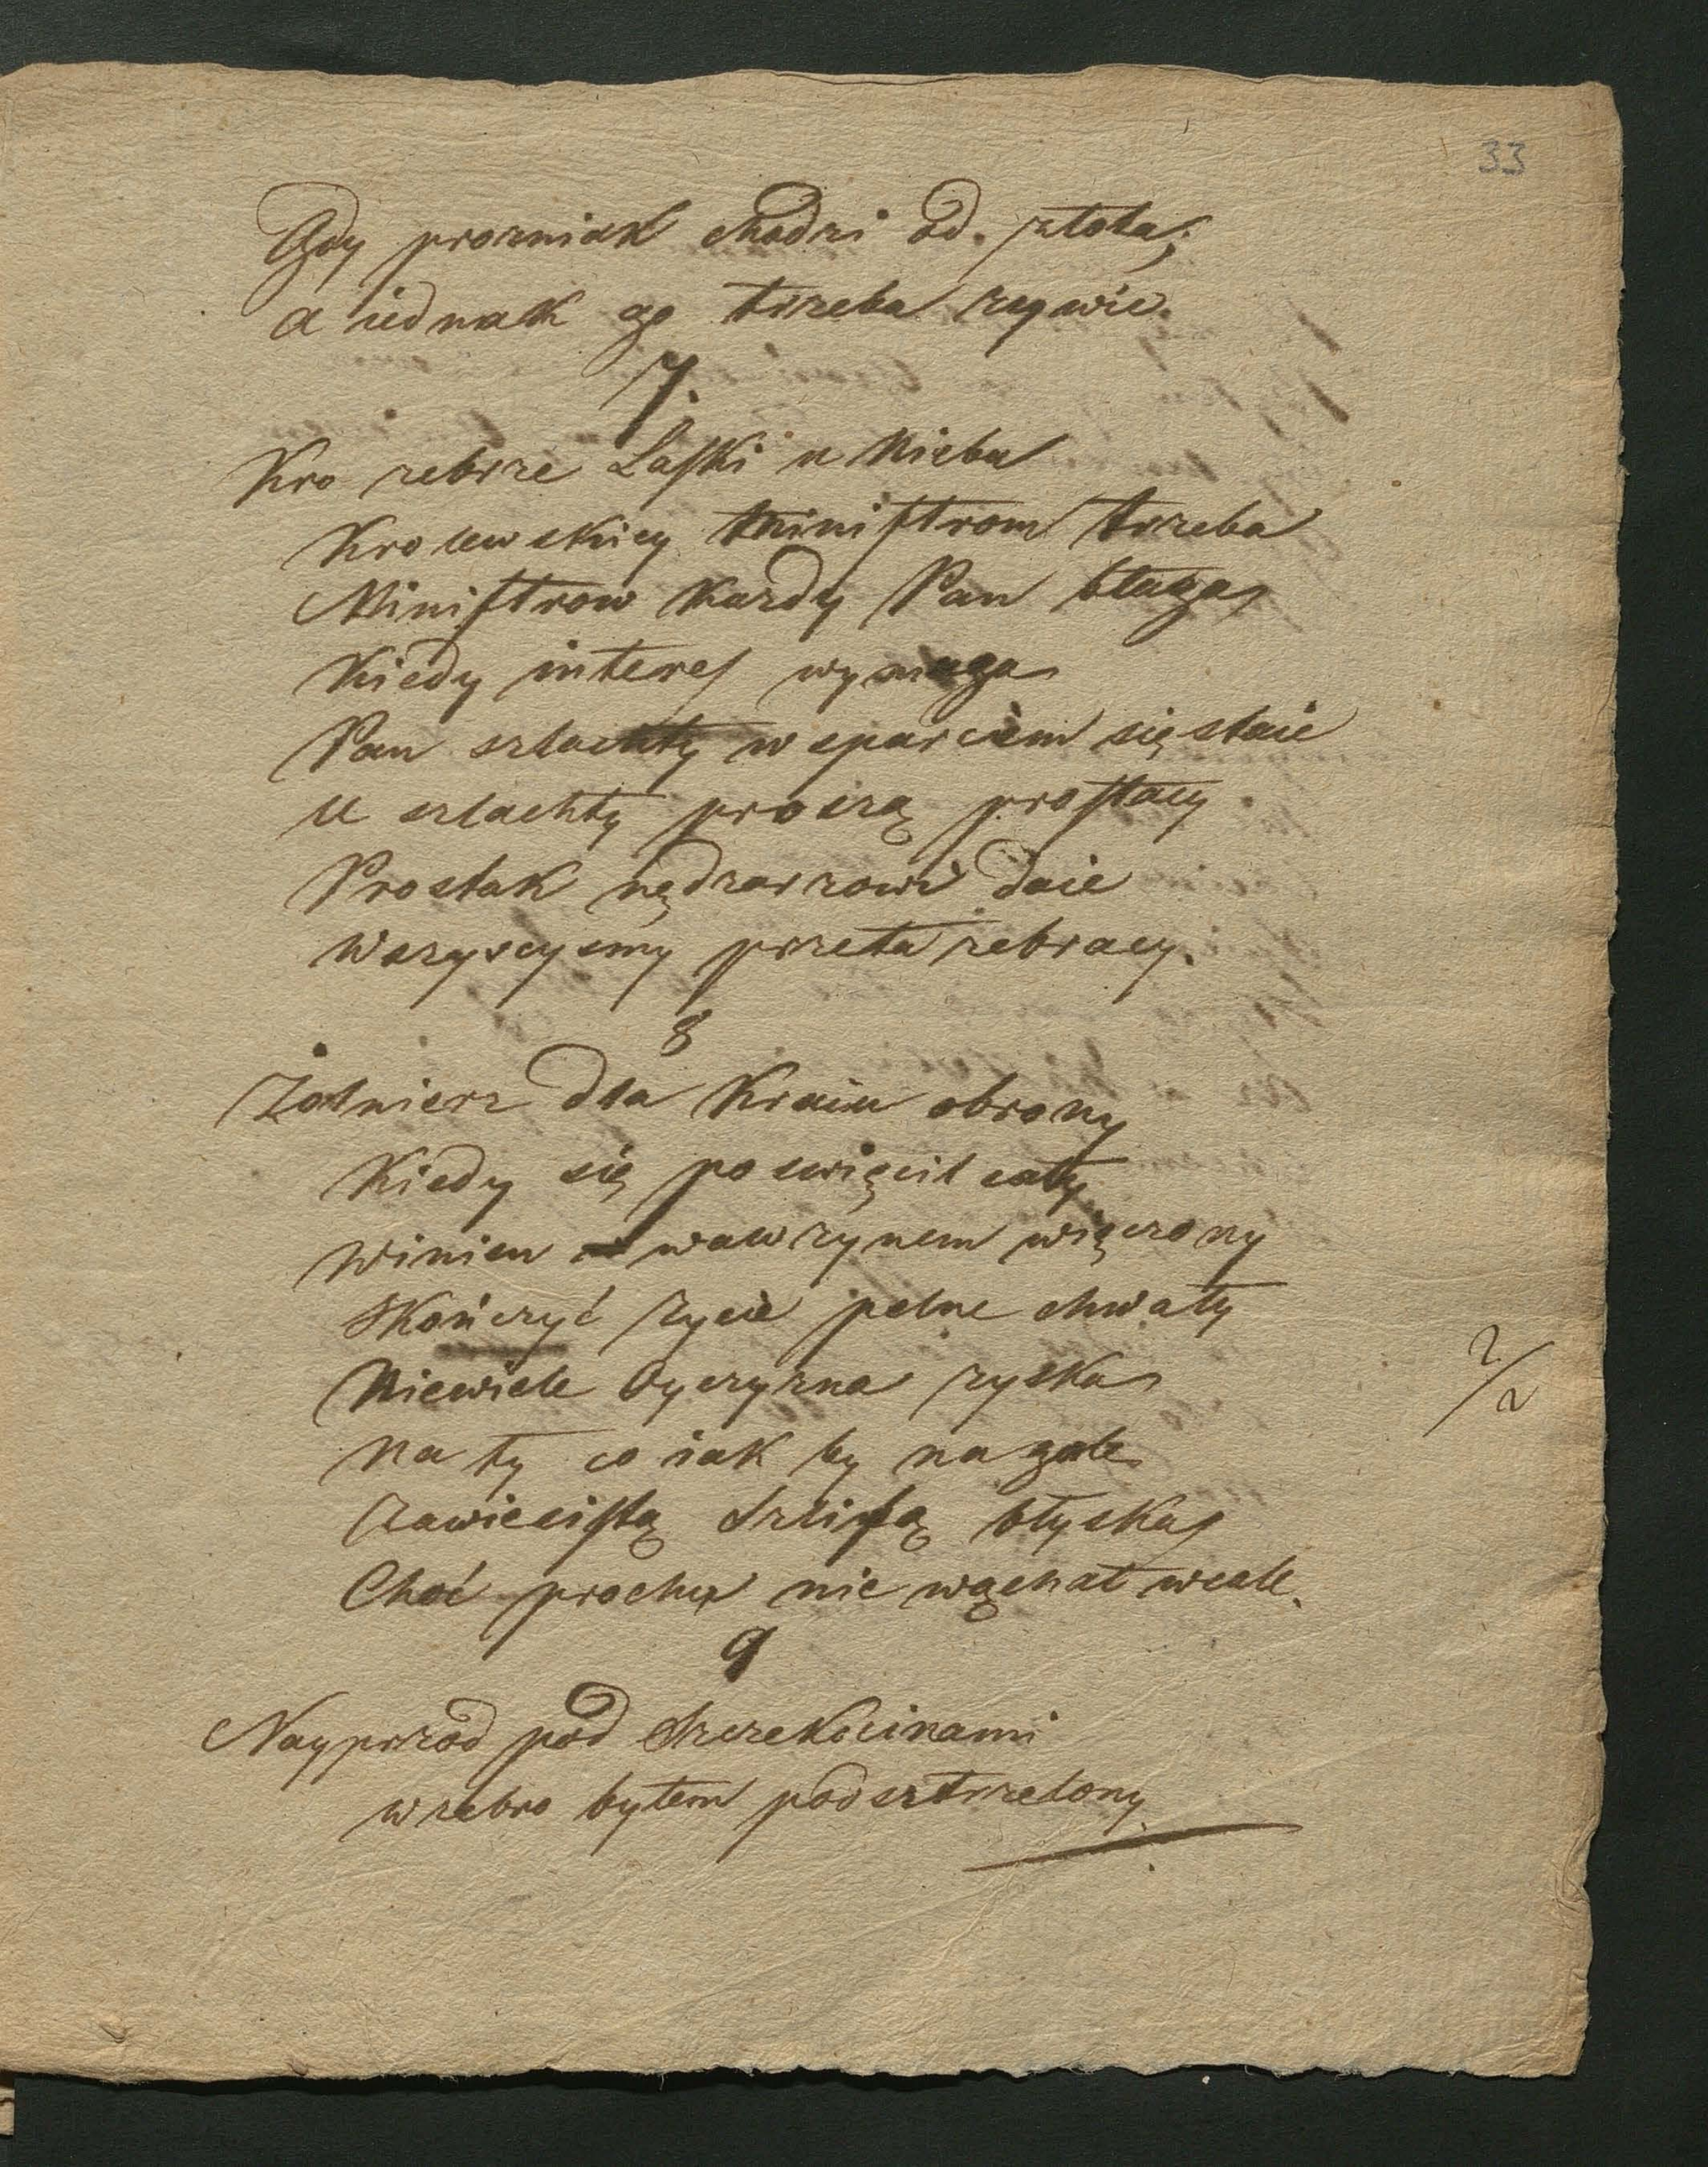 33
Gdy prozniak chodzi od złota,
a iednak go trzeba zywic.
7.
Kro zebrze Laski u Nieba
Krolewskiey Ministrom trzeba
Ministrow Kazdy Pan błaga
Kiedy interes wymaga
Pan szlachty wsparciem się staie
U szlachty proszą prostacy
Prostak nędzarzowi daie
Wszyscysmy przeto zebracy.
8
Żołnierz dla Kraiu obrony
Kiedy się poswięcił cały
Winien wawrzynem więczony
Skończyć zycie pełne chwały
Niewiele Oyczyzna zyska
Na ty co iak by na gale
Zawiesistą Szlifą błyska
Choć prochu nie wąchał wcale.
9
Nayprzod pod Szczekocinami
w zebro byłem podsztrzelony